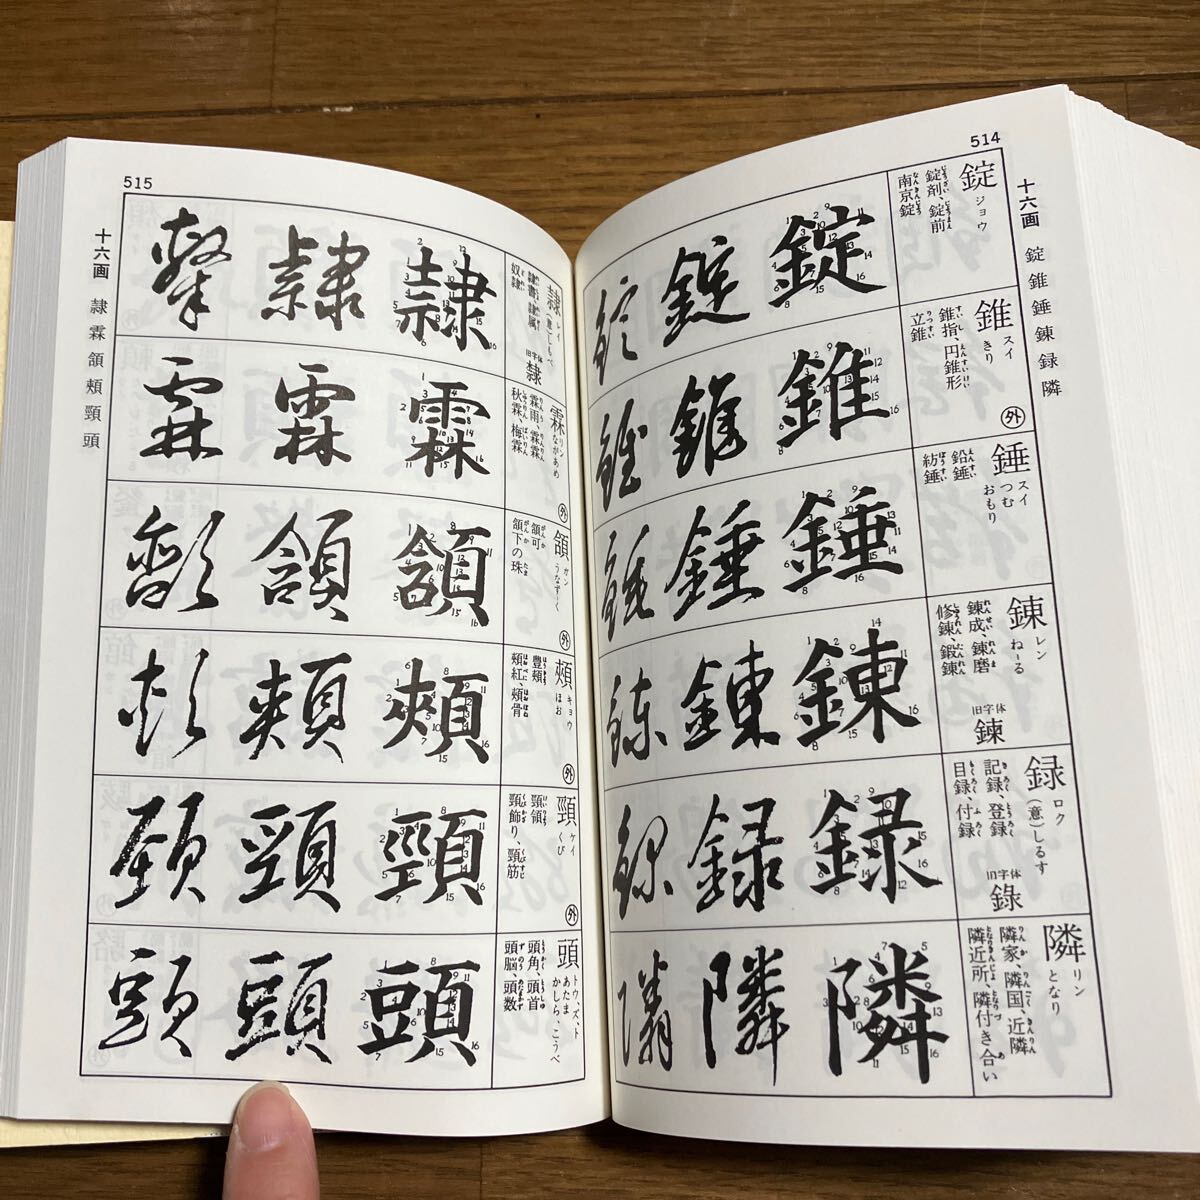 514
十六画 錠 錐 錘 錬 録 隣
錠 ジョウ
錠剤、錠前
南京錠
錠 錠 錠
錐 スイ きり
錐指、円錐形
立錐
外
錐 錐 錐
錘 スイ つむ おもり
鉛錘
紡錘
錘 錘 錘
錬 レン ね-る
錬成、錬磨
修錬、鍛錬
旧字体 鍊
錬 錬 錬
録 ロク (意)しるす
記録、登録
目録、付録
旧字体 錄
録 録 録
隣 リン となり
隣家、隣国、近隣
隣近所、隣付き合い
隣 隣 隣
515
十六画 隷 霖 頷 頰 頸 頭
隷 レイ (意)しもべ
隷書、隷属
奴隷
旧字体 隸
隷 隷 隷
霖 リン ながあめ
霖雨、霖霖
秋霖、梅霖
外
霖 霖 霖
頷 ガン うなず-く
頷可
頷下の珠
外
頷 頷 頷
頰 キョウ ほお
豊頰
頰紅、頰骨
外
頰 頰 頰
頸 ケイ くび
頸領
頸飾り、頸筋
外
頸 頸 頸
頭 トウ、ズ、ト あたま かしら、こうべ
頭角、頭首
頭脳、頭数
頭 頭 頭